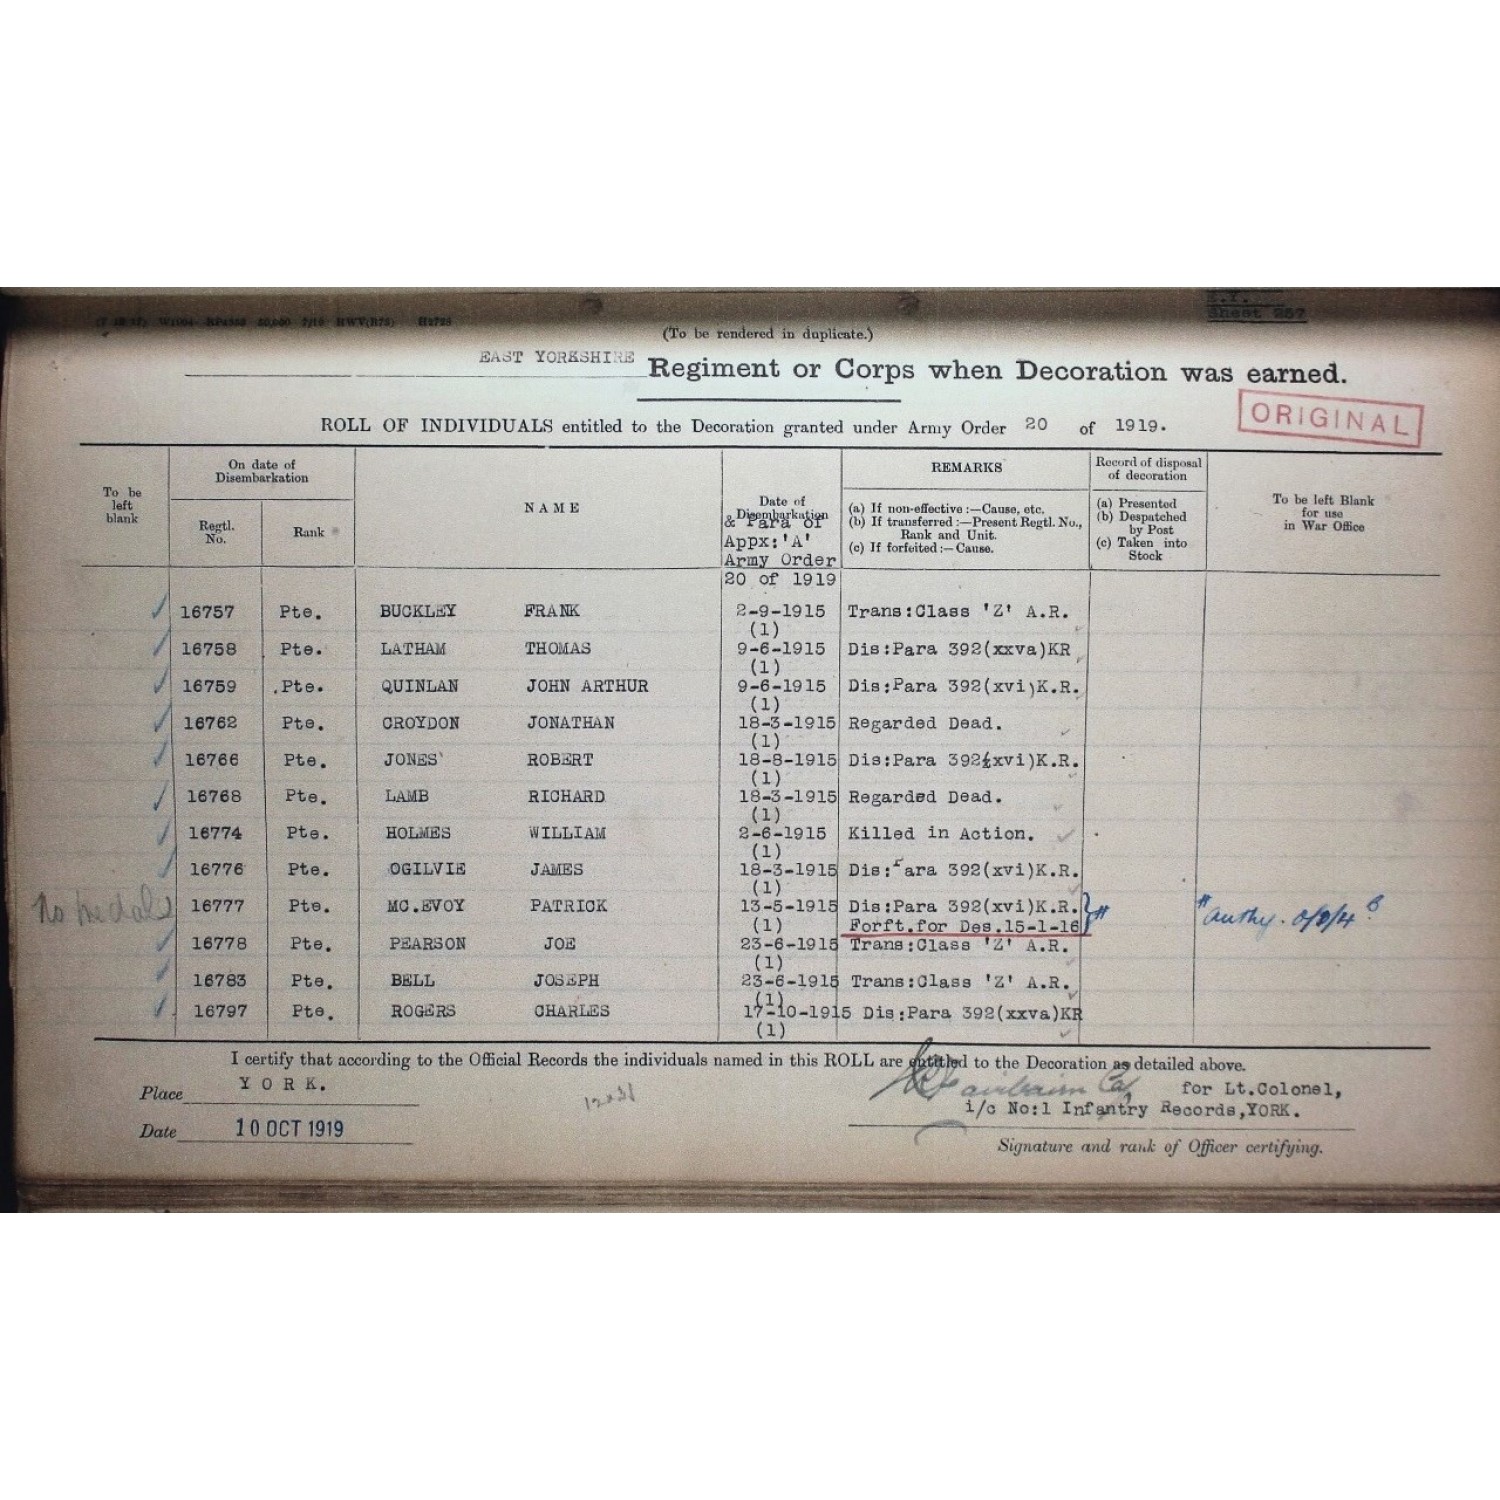 E.Y.
Sheet 257
(To be rendered in duplicate.)
EAST YORKSHIRE Regiment or Corps when Decoration was earned.
ORIGINAL
ROLL OF INDIVIDUALS entitled to the Decoration granted under Army Order 20 of 1919.
To be left blank
On date of Disembarkation
Regtl. No.
Rank
NAME
Date of
Disembarkation
& Para of
Appx:'A'
Army Order
20 of 1919
REMARKS
(a) If non-effective:—Cause, etc.
(b) If transferred:—Present Regtl. No.,
Rank and Unit.
(c) If forfeited:—Cause.
Record of disposal
of decoration
(a) Presented
(b) Despatched
by Post
(c) Taken into
Stock
To be left Blank
for use
in War Office
16757 Pte. BUCKLEY FRANK 2-9-1915 Trans:Class 'Z' A.R.
(1)
16758 Pte. LATHAM THOMAS 9-6-1915 Dis:Para 392(xxva)KR
(1)
16759 Pte. QUINLAN JOHN ARTHUR 9-6-1915 Dis:Para 392(xvi)K.R.
(1)
16762 Pte. CROYDON JONATHAN 18-3-1915 Regarded Dead.
(1)
16766 Pte. JONES ROBERT 18-8-1915 Dis:Para 392(xvi)K.R.
(1)
16768 Pte. LAMB RICHARD 18-3-1915 Regarded Dead.
(1)
16774 Pte. HOLMES WILLIAM 2-6-1915 Killed in Action.
(1)
16776 Pte. OGILVIE JAMES 18-3-1915 Dis:Para 392(xvi)K.R.
(1)
No medals 16777 Pte. MC.EVOY PATRICK 13-5-1915 Dis:Para 392(xvi)K.R.
(1) Forft.for Des.15-1-16
16778 Pte. PEARSON JOE 23-6-1915 Trans:Class 'Z' A.R.
(1)
16783 Pte. BELL JOSEPH 23-6-1915 Trans:Class 'Z' A.R.
(1)
16797 Pte. ROGERS CHARLES 17-10-1915 Dis:Para 392(xxva)KR
(1)
I certify that according to the Official Records the individuals named in this ROLL are entitled to the Decoration as detailed above.
Place YORK.
for Lt.Colonel,
i/c No:1 Infantry Records,YORK.
Date 10 OCT 1919
Signature and rank of Officer certifying.